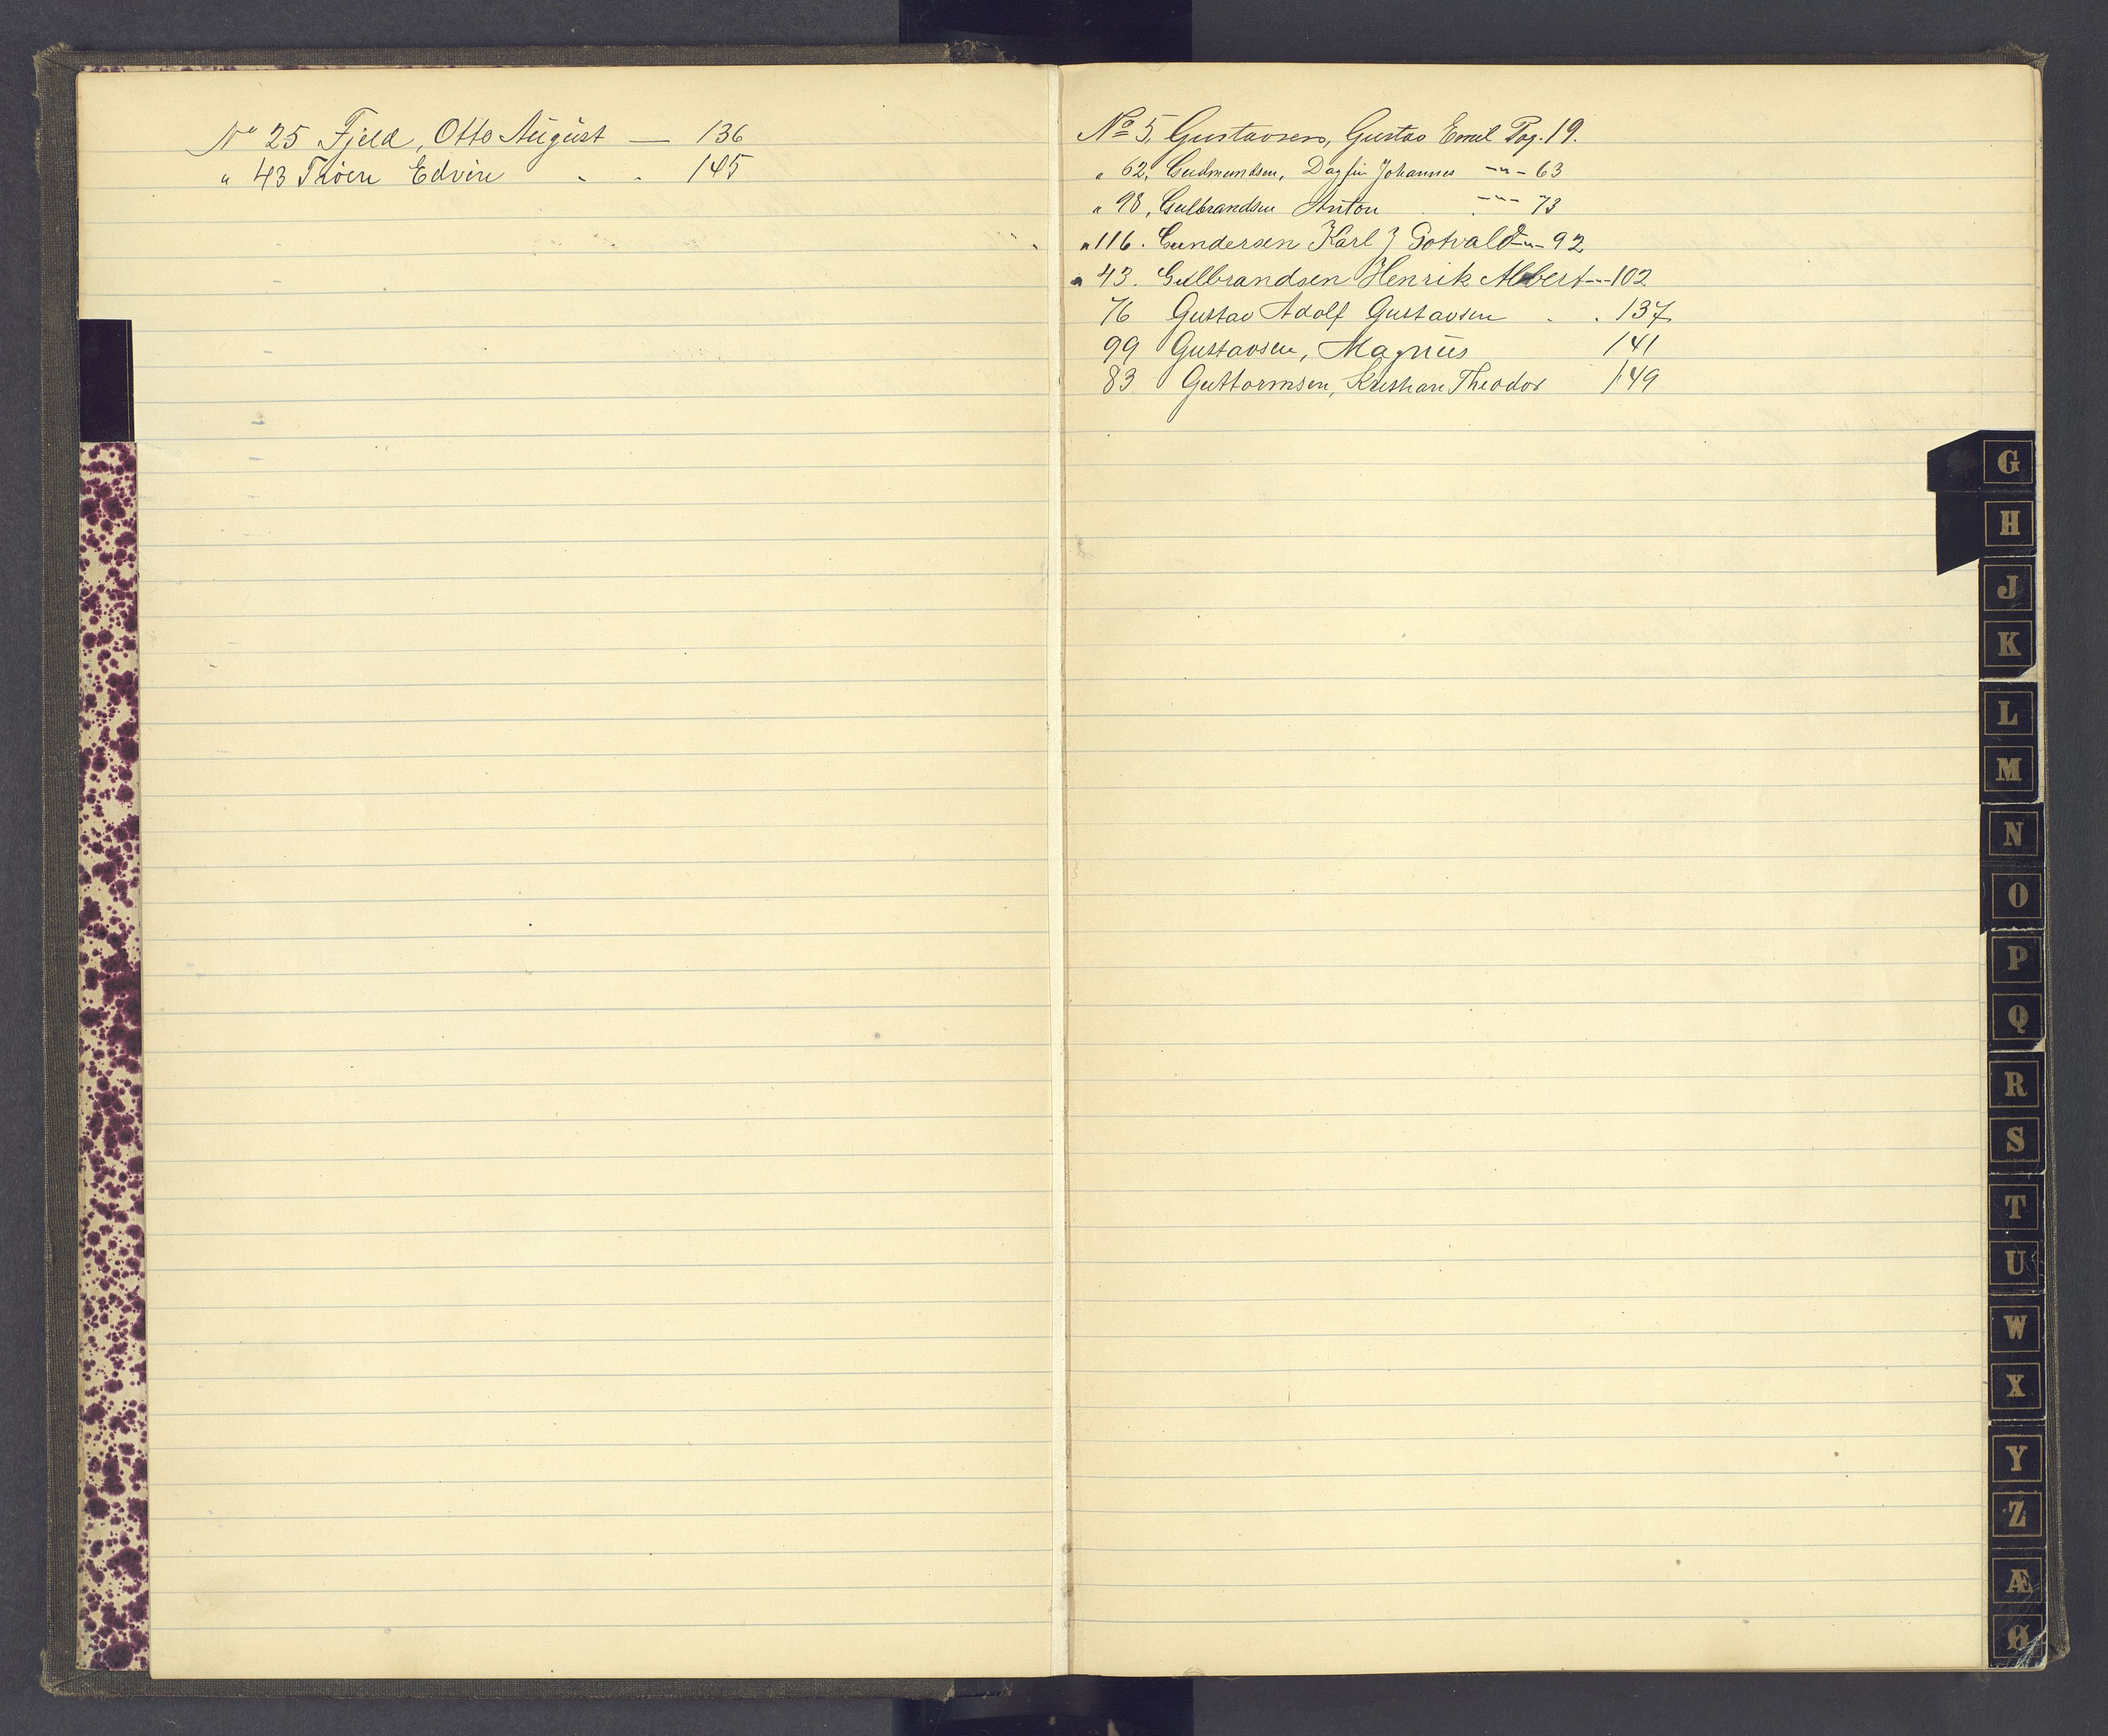 No 25 Fjeld, Otto August — 136
" 43 Frøen Edvin " " 145
No 5, Gustavsen, Gustav Emil Pag. 19.
" 62, Gudmundsen, Dagfin Johannes -"- 63
" 98, Gulbrandsen Anton -"- 73
" 116. Gundersen Karl J Gotvald -"- 92
" 43. Gulbrandsen Henrik Albert -"- 102
76 Gustav Adolf Gustavsen " " 137
99 Gustavsen, Magnus 141
83 Guttormsen, Kristian Theodor 149
G
H
J
K
L
M
N
O
P
Q
R
S
T
U
W
X
Y
Z
Æ
Ø